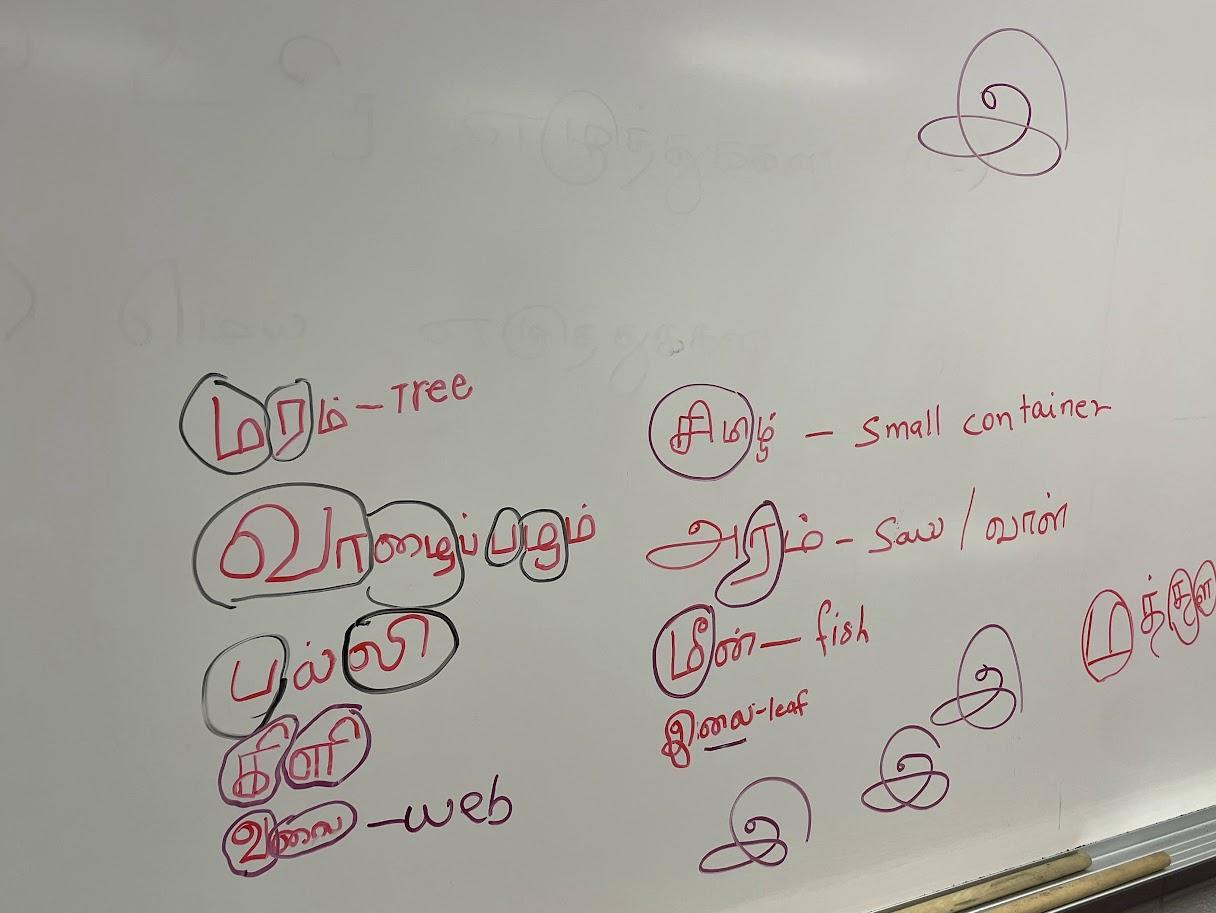 இ
மரம் – Tree
வாழைப்பழம்
பல்லி
கிளி
வலை – web
சிமிழ் – Small container
அரம் – Saw / வாள்
மீன் – fish
இலை – leaf
இ
இ
இ